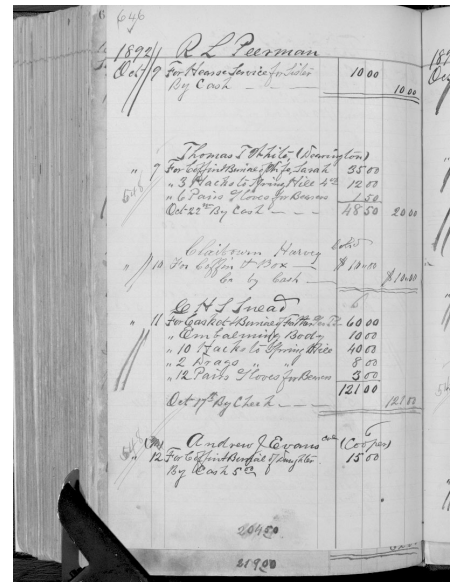 646
1892 R L Peerman
Oct 9 For Hearse Service for Sister 10 00
By Cash — 10 00
Thomas T White, (Dearington)
" 9 For Coffin & Burial of Wife, Sarah 35 00
548 " 3 Hacks to Spring Hill 4 00 12 00
" 6 Pairs Gloves for Bearers 1 50
Oct 22nd By Cash — — — 48 50 20 00
Claiborn Harvey
" 10 For Coffin & Box — $10.00
Cr by Cash — $10.00
C H L Snead
" 11 For Casket & Burial of Father 60 00
" Embalming Body 10 00
" 10 Hacks to Spring Hill 40 00
" 2 Drags " " 8 00
" 12 Pairs Gloves for Bearers 3 00
121 00
Oct 17th By Check — — — 121 00
548 Andrew J Evans Col (Cooper)
" 12 For Coffin & Burial of Daughter 15 00
By Cash 5 00
204 50
219 00